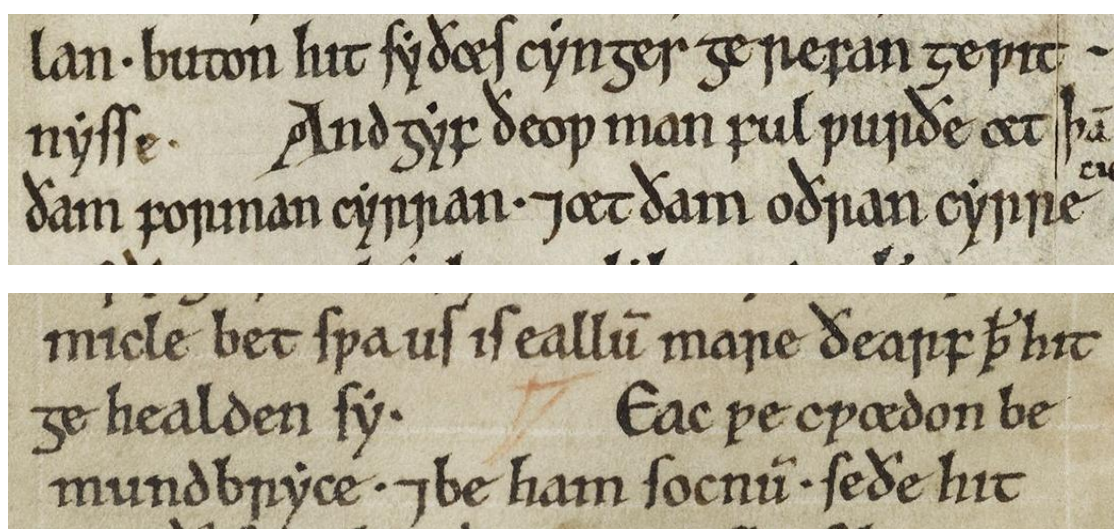 lan· buton hit sẏ ðæs cẏnges ge neꞃan ge ƿit -
nẏsse· And gẏf ðeoƿ man ful ƿurðe æt
ðam forman cẏrran· ⁊ æt ðam oðran cẏrre
micle bet sƿa us is eallū mare ðearf ꝥ hit
ge healden sẏ· Eac ƿe cƿædon be
mundbrẏce· ⁊ be ham socnū· se ðe hit